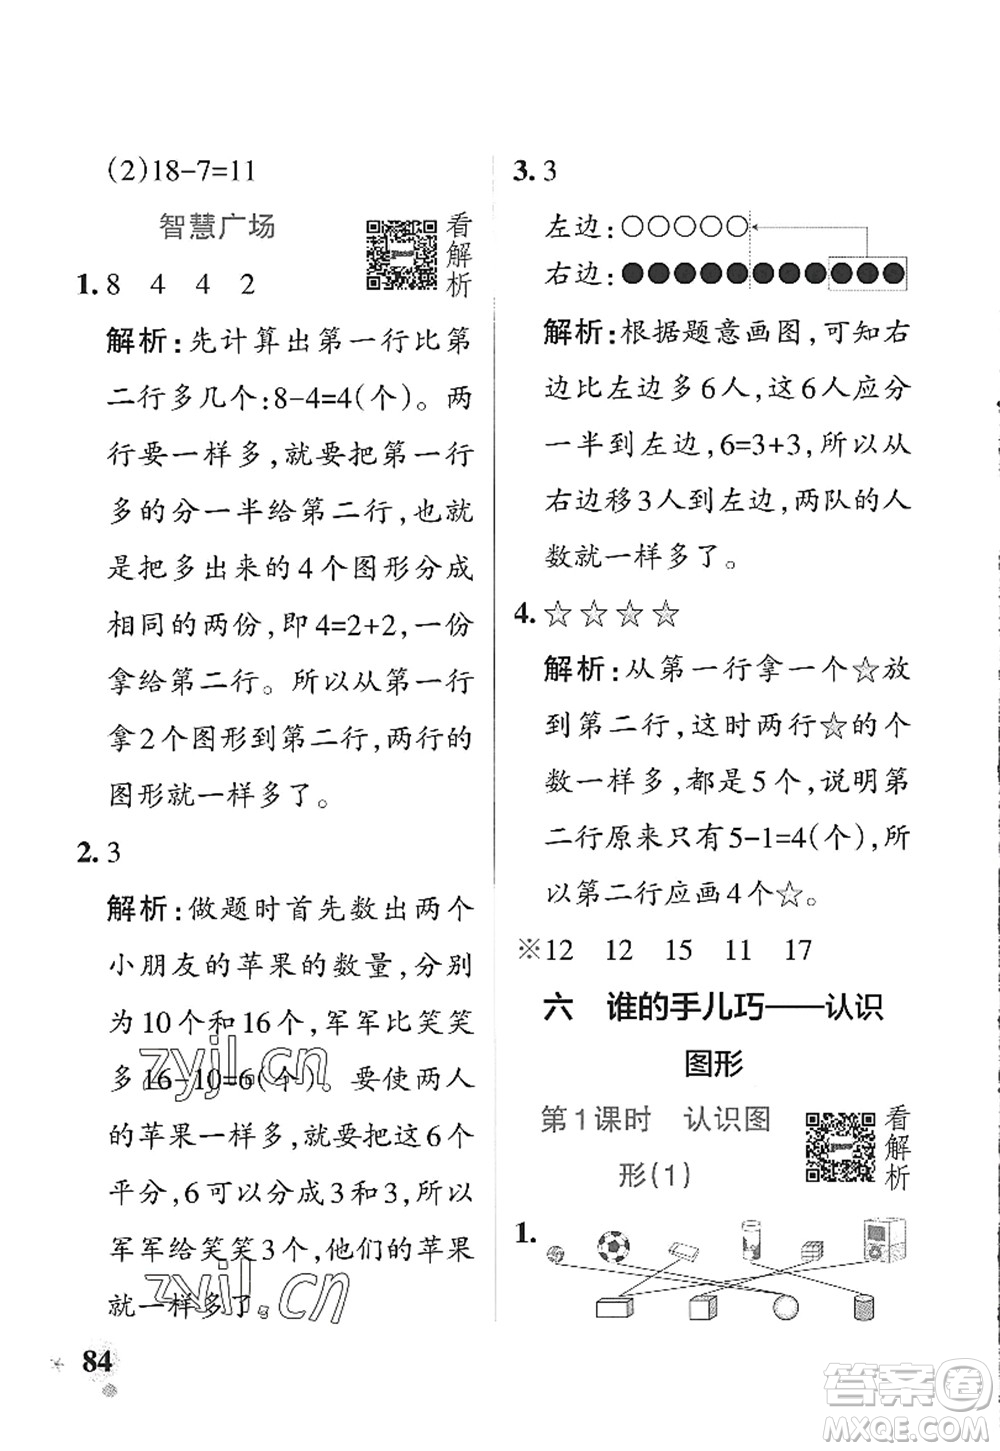 (2)18-7=11
智慧广场
看解析
1. 8 4 4 2
解析:先计算出第一行比第
二行多几个:8-4=4(个)。两
行要一样多,就要把第一行
多的分一半给第二行,也就
是把多出来的4个图形分成
相同的两份,即4=2+2,一份
拿给第二行。所以从第一行
拿2个图形到第二行,两行的
图形就一样多了。
2. 3
解析:做题时首先数出两个
小朋友的苹果的数量,分别
为10个和16个,军军比笑笑
多16-10=6(个)。要使两人
的苹果一样多,就要把这6个
平分,6可以分成3和3,所以
军军给笑笑3个,他们的苹果
就一样多了。
zyjl.cn
zyjl.cn
84
3. 3
左边:○○○○○
右边:●●●●●●●●●●●
解析:根据题意画图,可知右
边比左边多6人,这6人应分
一半到左边,6=3+3,所以从
右边移3人到左边,两队的人
数就一样多了。
4. ☆☆☆☆
解析:从第一行拿一个☆放
到第二行,这时两行☆的个
数一样多,都是5个,说明第
二行原来只有5-1=4(个),所
以第二行应画4个☆。
※12 12 15 11 17
六 谁的手儿巧——认识
图形
第1课时 认识图
形(1)
看解析
1.
答案圈
MXQE.COM